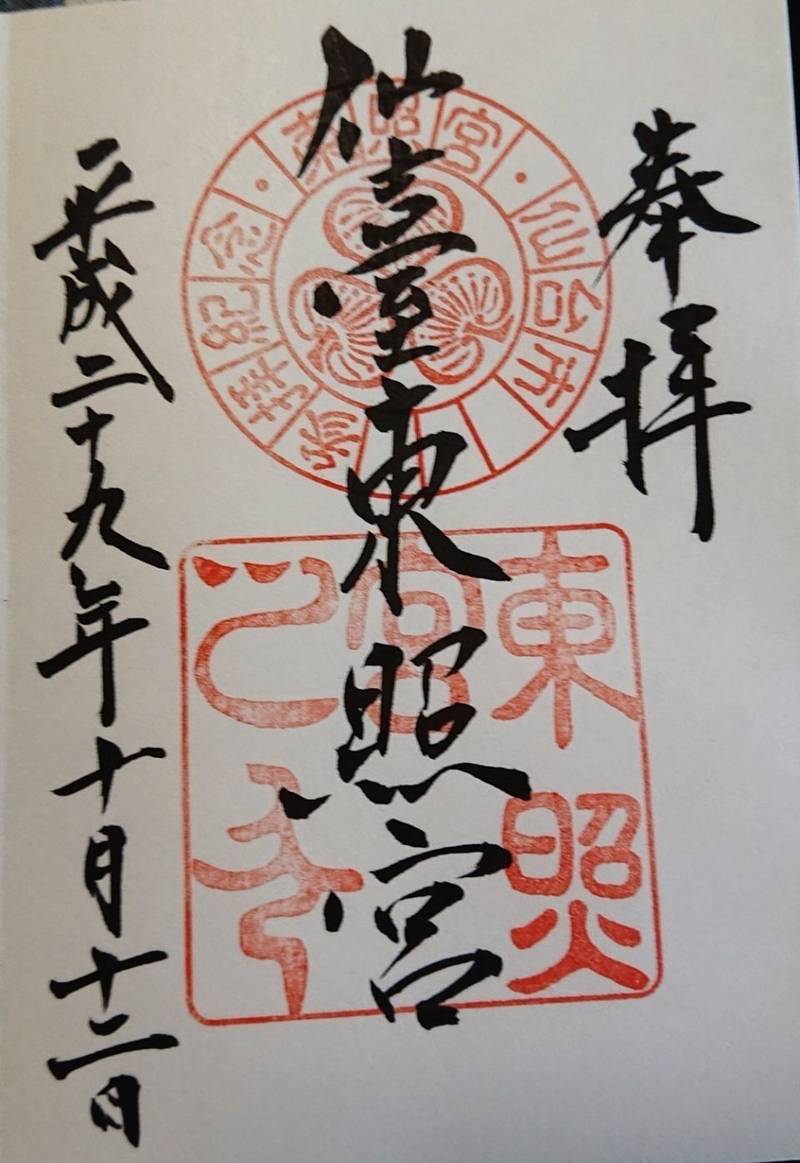 奉拝
仙臺東照宮
平成二十九年十月十二日
東照宮・仙台市
参拝紀念
東照
宮
之